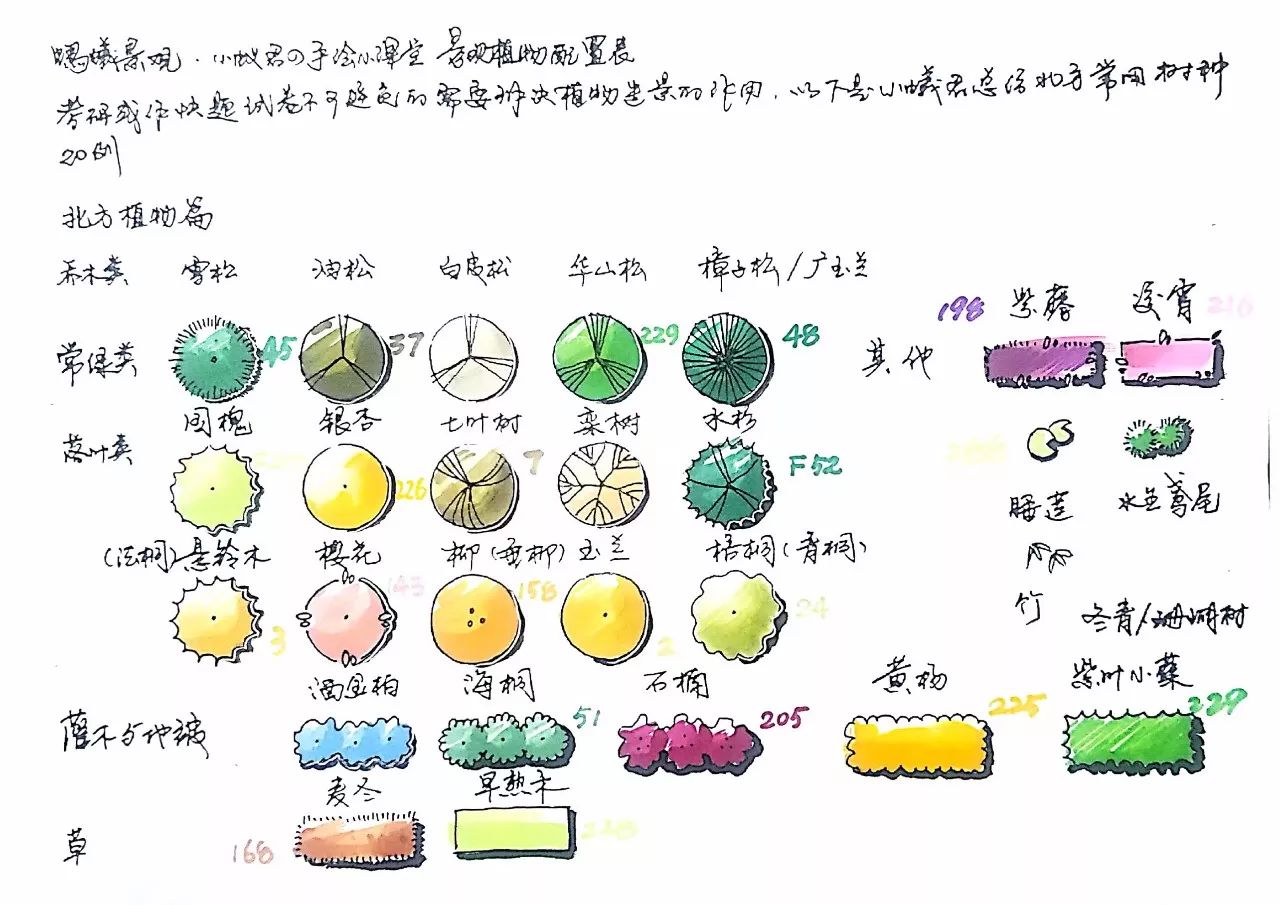 蚂蚁景观·小蚁君の手绘小课堂 景观植物配置表
考研或作快题试卷不可避免的需要解决植物造景的作用,以下是小蚁君总结北方常用树种
20例
北方植物篇
乔木类 雪松 油松 白皮松 华山松 樟子松/广玉兰
198 紫藤 凌霄 216
常绿类 45 37 229 48 其他
国槐 银杏 七叶树 栾树 水杉
落叶类 226 7 F52
睡莲 水生鸢尾
(法桐)悬铃木 樱花 柳(垂柳) 玉兰 梧桐(青桐)
143 158 24
3 2
竹 冬青/珊瑚树
洒金柏 海桐 石楠 黄杨 紫叶小蘗
灌木与地被 51 205 225 229
麦冬 早熟禾
草 168